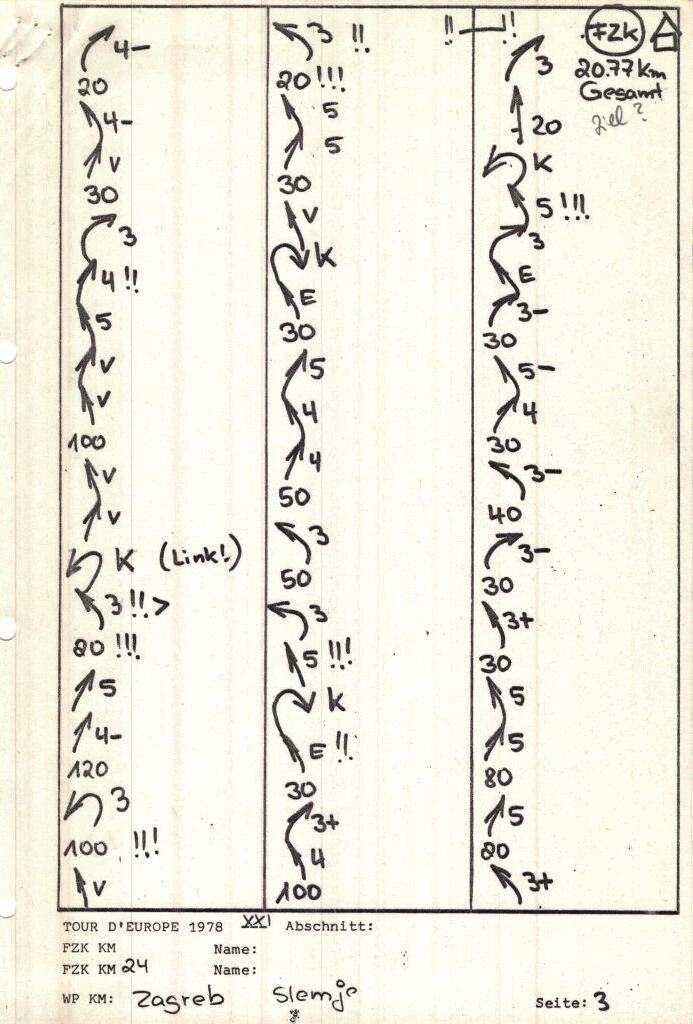 4-
20
4-
V
30
3
4 !!
5
V
V
100
V
V
K (Link!)
3 !! >
80 !!!
5
4-
120
3
100 !!!
V
3 !!
20 !!!
5
5
30
V
K
E
30
5
4
4
50
3
50
3
5 !!!
K
E !!
30
3+
4
100
!! — !!
3
20
K
5 !!!
3
E
3-
30
5-
4
30
3-
40
3-
30
3+
30
5
5
80
5
80
3+
FZK
20.77 Km
Gesamt
Ziel?
TOUR D'EUROPE 1978 XXI Abschnitt:
FZK KM Name:
FZK KM 24 Name:
WP KM: Zagreb Slemje Seite: 3